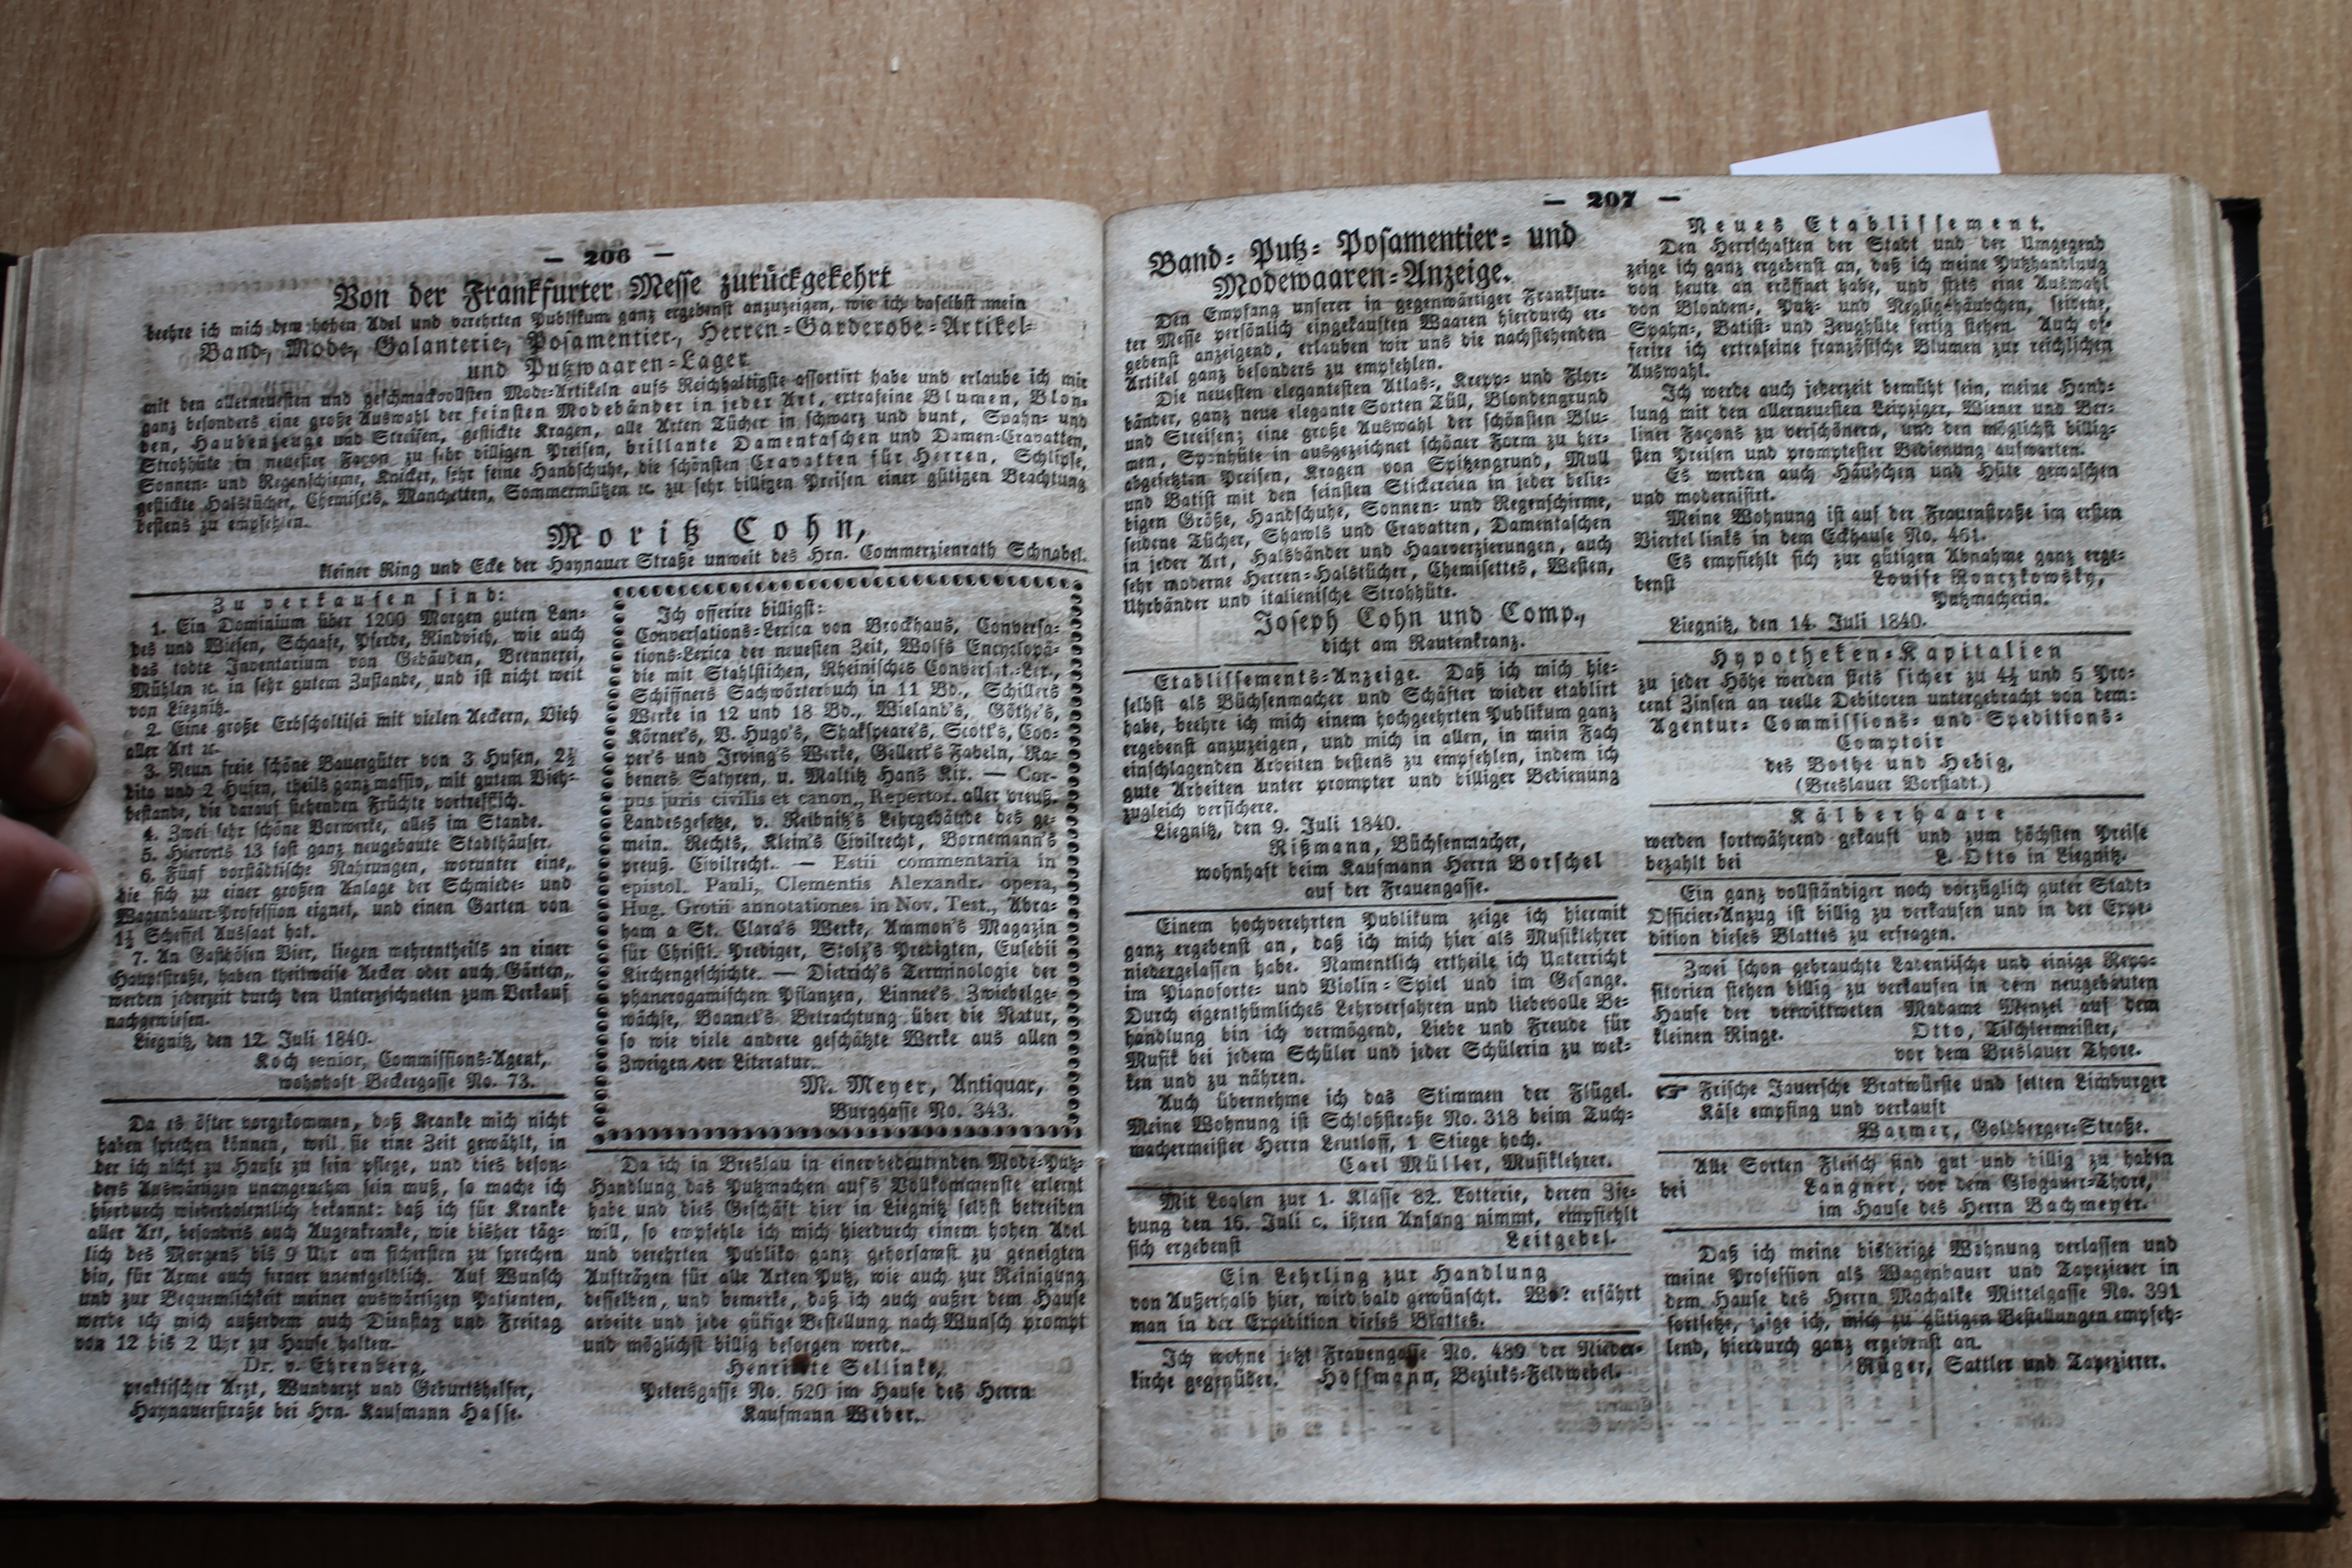 — 206 —
Von der Frankfurter Messe zurückgekehrt
beehre ich mich dem hohen Adel und verehrten Publikum ganz ergebenst anzuzeigen, wie ich daselbst mein
Band-, Mode-, Galanterie-, Posamentier-, Herren-Garderobe-Artikel-
und Putzwaaren-Lager
mit den allerneuesten und geschmackvollsten Mode-Artikeln aufs Reichhaltigste assortirt habe und erlaube ich mir
ganz besonders eine große Auswahl der feinsten Modebänder in jeder Art, extrafeine Blumen, Blon-
den, Haubenzeuge und Streifen, gestickte Kragen, alle Arten Tücher in schwarz und bunt, Spahn- und
Strohhüte in neuester Façon zu sehr billigen Preisen, brillante Damentaschen und Damen-Cravatten,
Sonnen- und Regenschirme, Knicker, sehr feine Handschuhe, die schönsten Cravatten für Herren, Schlipse,
gestickte Halstücher, Chemisets, Manchetten, Sommermützen ꝛc. zu sehr billigen Preisen einer gütigen Beachtung
bestens zu empfehlen.
Moritz Cohn,
kleiner Ring und Ecke der Haynauer Straße unweit des Hrn. Commerzienrath Schnabel.
Zu verkaufen sind:
1. Ein Dominium über 1200 Morgen guten Lan-
des und Wiesen, Schaafe, Pferde, Rindvieh, wie auch
das todte Inventarium von Gebäuden, Brennerei,
Mühlen ꝛc. in sehr gutem Zustande, und ist nicht weit
von Liegnitz.
2. Eine große Erbscholtisei mit vielen Aeckern, Vieh
aller Art ꝛc.
3. Neun freie schöne Bauergüter von 3 Hufen, 2½
dito und 2 Hufen, theils ganz massiv, mit gutem Vieh-
bestande, die darauf stehenden Früchte vortrefflich.
4. Zwei sehr schöne Vorwerke, alles im Stande.
5. Hierorts 13 fast ganz neugebaute Stadthäuser.
6. Fünf vorstädtische Nahrungen, worunter eine,
die sich zu einer großen Anlage der Schmiede- und
Wagenbauer-Profession eignet, und einen Garten von
1½ Scheffel Aussaat hat.
7. An Gasthöfen Vier, liegen mehrentheils an einer
Hauptstraße, haben theilweise Aecker oder auch Gärten,
werden jederzeit durch den Unterzeichneten zum Verkauf
nachgewiesen.
Liegnitz, den 12. Juli 1840.
Koch senior, Commissions-Agent,
wohnhaft Beckergasse No. 73.
Da es öfter vorgekommen, daß Kranke mich nicht
haben sprechen können, weil sie eine Zeit gewählt, in
der ich nicht zu Hause zu sein pflege, und dies beson-
ders Auswärtigen unangenehm sein muß, so mache ich
hierdurch wiederholentlich bekannt: daß ich für Kranke
aller Art, besonders auch Augenkranke, wie bisher täg-
lich des Morgens bis 9 Uhr am sichersten zu sprechen
bin, für Arme auch ferner unentgeldlich. Auf Wunsch
und zur Bequemlichkeit meiner auswärtigen Patienten,
werde ich mich außerdem auch Dünstag und Freitag
von 12 bis 2 Uhr zu Hause halten.
Dr. v. Ehrenberg,
praktischer Arzt, Wundarzt und Geburtshelfer,
Haynauerstraße bei Hrn. Kaufmann Hasse.
Ich offerire billigst:
Conversations-Lexica von Brockhaus, Conversa-
tions-Lexica der neuesten Zeit, Wolfs Encyclopä-
die mit Stahlstichen, Rheinisches Conversat.-Lex.,
Schiffners Sachwörterbuch in 11 Bd., Schillers
Werke in 12 und 18 Bd., Wieland's, Göthe's,
Körner's, V. Hugo's, Shakspeare's, Scott's, Coo-
per's und Irving's Werke, Gellert's Fabeln, Ra-
beners Satyren, u. Maltitz Hans Kix. — Cor-
pus juris civilis et canon., Repertor. aller preuß.
Landesgesetze, v. Reibnitz's Lehrgebäude des ge-
mein. Rechts, Klein's Civilrecht, Bornemann's
preuß. Civilrecht. — Estii commentaria in
epistol. Pauli, Clementis Alexandr. opera,
Hug. Grotii annotationes in Nov. Test., Abra-
ham a St. Clara's Werke, Ammon's Magazin
für Christl. Prediger, Stolz's Predigten, Eusebii
Kirchengeschichte. — Dietrich's Terminologie der
phanerogamischen Pflanzen, Linnee's Zwiebelge-
wächse, Bonnet's Betrachtung über die Natur,
so wie viele andere geschätzte Werke aus allen
Zweigen der Literatur.
M. Meyer, Antiquar,
Burggasse No. 343.
Da ich in Breslau in einer bedeutenden Mode-Putz-
Handlung das Putzmachen auf's Vollkommenste erlernt
habe und dies Geschäft hier in Liegnitz selbst betreiben
will, so empfehle ich mich hierdurch einem hohen Adel
und verehrten Publiko ganz gehorsamst zu geneigten
Aufträgen für alle Arten Putz, wie auch zur Reinigung
desselben, und bemerke, daß ich auch außer dem Hause
arbeite und jede gütige Bestellung nach Wunsch prompt
und möglichst billig besorgen werde.
Henriette Sellinke,
Petersgasse No. 520 im Hause des Herrn
Kaufmann Weber.
— 207 —
Band- Putz- Posamentier- und
Modewaaren-Anzeige.
Den Empfang unserer in gegenwärtiger Frankfur-
ter Messe persönlich eingekauften Waaren hierdurch er-
gebenst anzeigend, erlauben wir uns die nachstehenden
Artikel ganz besonders zu empfehlen.
Die neuesten elegantesten Atlas-, Krepp- und Flor-
bänder, ganz neue elegante Sorten Tüll, Blondengrund
und Streifen; eine große Auswahl der schönsten Blu-
men, Spanhüte in ausgezeichnet schöner Form zu her-
abgesetzten Preisen, Kragen von Spitzengrund, Mull
und Batist mit den feinsten Stickereien in jeder belie-
bigen Größe, Handschuhe, Sonnen- und Regenschirme,
seidene Tücher, Shawls und Cravatten, Damentaschen
in jeder Art, Halsbänder und Haarverzierungen, auch
sehr moderne Herren-Halstücher, Chemisettes, Westen,
Uhrbänder und italienische Strohhüte.
Joseph Cohn und Comp.,
dicht am Rautenkranz.
Etablissements-Anzeige. Daß ich mich hie-
selbst als Büchsenmacher und Schäfter wieder etablirt
habe, beehre ich mich einem hochgeehrten Publikum ganz
ergebenst anzuzeigen, und mich in allen, in mein Fach
einschlagenden Arbeiten bestens zu empfehlen, indem ich
gute Arbeiten unter prompter und billiger Bedienung
zugleich versichere.
Liegnitz, den 9. Juli 1840.
Rißmann, Büchsenmacher,
wohnhaft beim Kaufmann Herrn Borschel
auf der Frauengasse.
Einem hochverehrten Publikum zeige ich hiermit
ganz ergebenst an, daß ich mich hier als Musiklehrer
niedergelassen habe. Namentlich ertheile ich Unterricht
im Pianoforte- und Violin-Spiel und im Gesange.
Durch eigenthümliches Lehrverfahren und liebevolle Be-
handlung bin ich vermögend, Liebe und Freude für
Musik bei jedem Schüler und jeder Schülerin zu wek-
ken und zu nähren.
Auch übernehme ich das Stimmen der Flügel.
Meine Wohnung ist Schloßstraße No. 318 beim Tuch-
machermeister Herrn Leutloff, 1 Stiege hoch.
Carl Müller, Musiklehrer.
Mit Loosen zur 1. Klasse 82. Lotterie, deren Zie-
hung den 16. Juli c. ihren Anfang nimmt, empfiehlt
sich ergebenst Leitgebel.
Ein Lehrling zur Handlung
von Außerhalb hier, wird bald gewünscht. Wo? erfährt
man in der Expedition dieses Blattes.
Ich wohne jetzt Frauengasse No. 489 der Nieder-
kirche gegenüber. Hoffmann, Bezirks-Feldwebel.
Neues Etablissement.
Den Herrschaften der Stadt und der Umgegend
zeige ich ganz ergebenst an, daß ich meine Putzhandlung
von heute an eröffnet habe, und stets eine Auswahl
von Blonden-, Putz- und Negligéhäubchen, seidene,
Spahn-, Batist- und Zeughüte fertig stehen. Auch of-
ferire ich extrafeine französische Blumen zur reichlichen
Auswahl.
Ich werde auch jederzeit bemüht sein, meine Hand-
lung mit den allerneuesten Leipziger, Wiener und Ber-
liner Façons zu verschönern, und den möglichst billig-
sten Preisen und promptester Bedienung aufwarten.
Es werden auch Häubchen und Hüte gewaschen
und modernisirt.
Meine Wohnung ist auf der Frauenstraße im ersten
Viertel links in dem Eckhause No. 461.
Es empfiehlt sich zur gütigen Abnahme ganz erge-
benst Louise Konczkowsky,
Putzmacherin.
Liegnitz, den 14. Juli 1840.
Hypotheken-Kapitalien
zu jeder Höhe werden stets sicher zu 4½ und 5 Pro-
cent Zinsen an reelle Debitoren untergebracht von dem:
Agentur- Commissions- und Speditions-
Comptoir
des Bothe und Hebig,
(Breslauer Vorstadt.)
Kälberhaare
werden fortwährend gekauft und zum höchsten Preise
bezahlt bei L. Otto in Liegnitz.
Ein ganz vollständiger noch vorzüglich guter Stadt-
Officier-Anzug ist billig zu verkaufen und in der Expe-
dition dieses Blattes zu erfragen.
Zwei schon gebrauchte Ladentische und einige Repo-
sitorien stehen billig zu verkaufen in dem neugebauten
Hause der verwittweten Madame Menzel auf dem
kleinen Ringe. Otto, Tischlermeister,
vor dem Breslauer Thore.
☞ Frische Jauersche Bratwürste und fetten Limburger
Käse empfing und verkauft
Warmer, Goldberger-Straße.
Alle Sorten Fleisch sind gut und billig zu haben
bei Langner, vor dem Glogauer-Thore,
im Hause des Herrn Bachmeyer.
Daß ich meine bisherige Wohnung verlassen und
meine Profession als Wagenbauer und Tapezierer in
dem Hause des Herrn Machalke Mittelgasse No. 391
fortsetze, zeige ich, mich zu gütigen Bestellungen empfeh-
lend, hierdurch ganz ergebenst an.
Rüger, Sattler und Tapezierer.